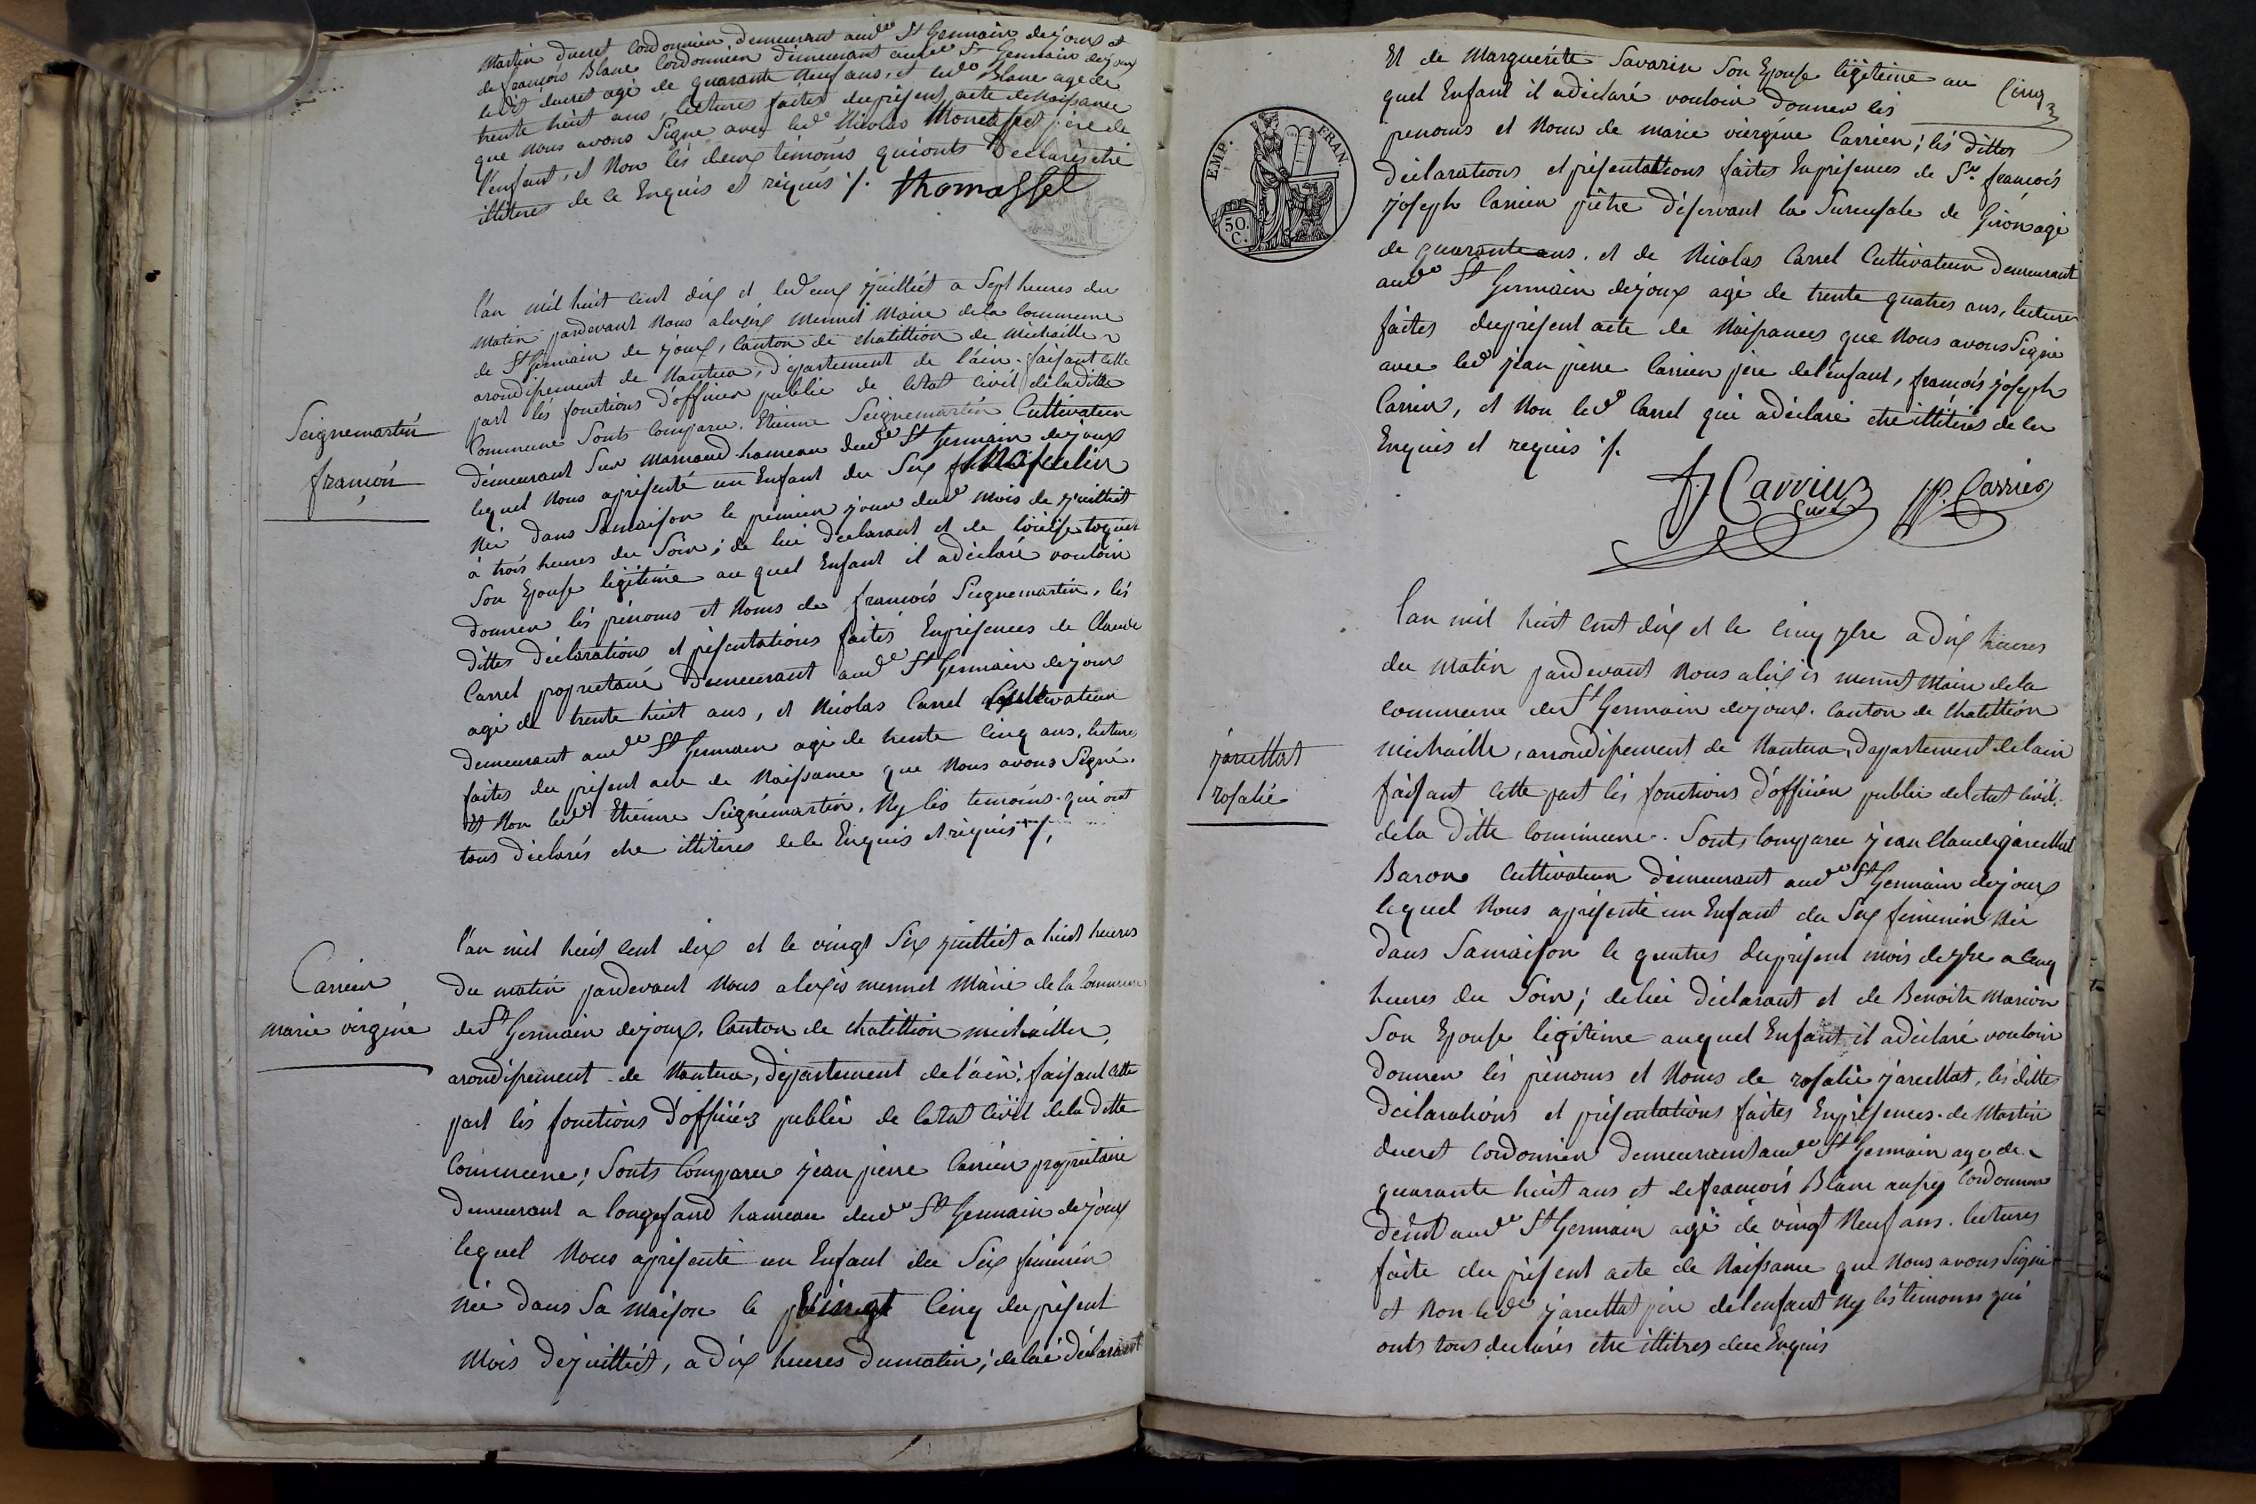 Martin ducret Cordonnier, demeurant aud.e St Germain de joux et
de françois Blanc Cordonnier demeurant aud.e St Germain dejoux
ledit ducret agé de quarante neuf ans, et led.e Blanc agé de
trente huit ans, lectures faites du présent acte de Naissance
que Nous avons Signé avec led.e Nicolas père de
l'enfant, et Non lés deux témoins quionts Déclarés etre
illitéres de ce Enquis et réquis ·/. thomasset
l'an mil huit cent dix et le deux juilliét a Sept heures du
matin pardevant Nous alexis mermet Maire dela Commune
de St Germain de joux, Canton de chatillion de michaille
arondissement de Nantua, département de l'ain. faisant cette
part lés fonctions d'officier public de létat civil deladitte
Commune Sonts Comparu. Etienne Seignemartin Cultivateur
démeurant Sur marnaud hameau dud.e St Germain dejoux
lequel Nous apresenté un Enfant du Sex masculin
Né dans Samaison le premier jour dud.e mois de juilliet
à trois heures du Soir; de lui déclarant et de
Son Epouse légitime au quel Enfant il adéclaré vouloir
donner lés prénoms et Noms de francois Seignemartin, lés
dittes déclarations et présentations faites Enprésences de Claude
Carrel propriétaire demeurant aud.e St Germain dejoux
agé de trente huit ans, et Nicolas Carrel Cultivateur
demeurant aud.e St Germain agé de trente Cinq ans, lectures
faites du présent acte de Naissance que Nous avons Signé.
et Non led.e Etienne Seignemartin. Ny lés temoins qui ont
tous déclarés etre illitéres dele Enquis et réquis ·/.
Seignemartin
françois
l'an mil huit cent dix et le vingt Six juilliét a huit heures
Du matin pardevant Nous alexis mermet Maire de la Commune
de St Germain dejoux, Canton de chatillion michaille,
arondissement de Nantua, département de l'ain, faisant cette
part lés fonctions d'officier public de létat civil deladitte
Commune; Sonts Comparu jean pierre Carrier propriétaire
demeurant a longefand hameau dud.e St Germain dejoux
lequel Nous apresenté un Enfant du Sex féminin
née dans Sa maison le vingt Cinq du présent
Mois dejuilliét, a dix heures dumatin; delui déclarant
Carrier
marie virgine
Et de Marguérite Savarin Son Epouse légiteime au
quel Enfant il adéclaré vouloir donner lés
Cinq
prenoms et Nom de marie viergine Carrier; lés dittes
déclarations et présentattions faites Enprésences de Sr. françois
joseph Carrier prêtre déservant la Sucursale de Giron agé
de quarante ans. et de Nicolas Carrel Cultivateur demeurant
aud.e St Germain dejoux agé de trente quatres ans, lectures
faites duprésent acte de Naissances que Nous avons Signé
avec led.e jean pierre Carrier père del'enfant, francois joseph
Carrier, et Non led.e Carrel qui adéclaré etre illitérés de ce
Enquis et requis ·/.
EMP. FRAN.
50. C.
fj Carrier
jp. Carrier
l'an mil huit cent dix et le cinq 7bre a dix heures
du matin pardevant Nous alexis mermet Maire dela
commune de St Germain dejoux. Canton de Chatillion
michaille, arrondissement de Nantua, département delain
faisant Cette part lés fonctions d'officier public del'etat civil.
dela ditte Commune. Sonts Comparu jean Claude jarcellat
Baron Cultivateur démeurant aud.e St Germain dejoux
lequel Nous apresenté un Enfant du Sex féminin Née
dans Samaison le quatres duprésent mois de7bre a Cinq
heures du Soir; delui déclarant et de Benoite Marion
Son Epouse légitime auquel Enfant il adéclaré vouloir
donner lés prénoms et Noms de rosalie jarcellat, lés dittes
déclarations et présentations faites Enprésences de Martin
ducret Cordonnier demeurant aud.e St Germain agé de
quarante huit ans et de françois Blanc Cordonnier
aud.e St Germain agé de vingt Neuf ans. lectures
faite du présent acte de Naissance que Nous avons Signé
et Non led.e jarcellat père del'enfant Ny lés temoins qui
onts tous declarés etre illitres dece Enquis
jarcellat
rosalie